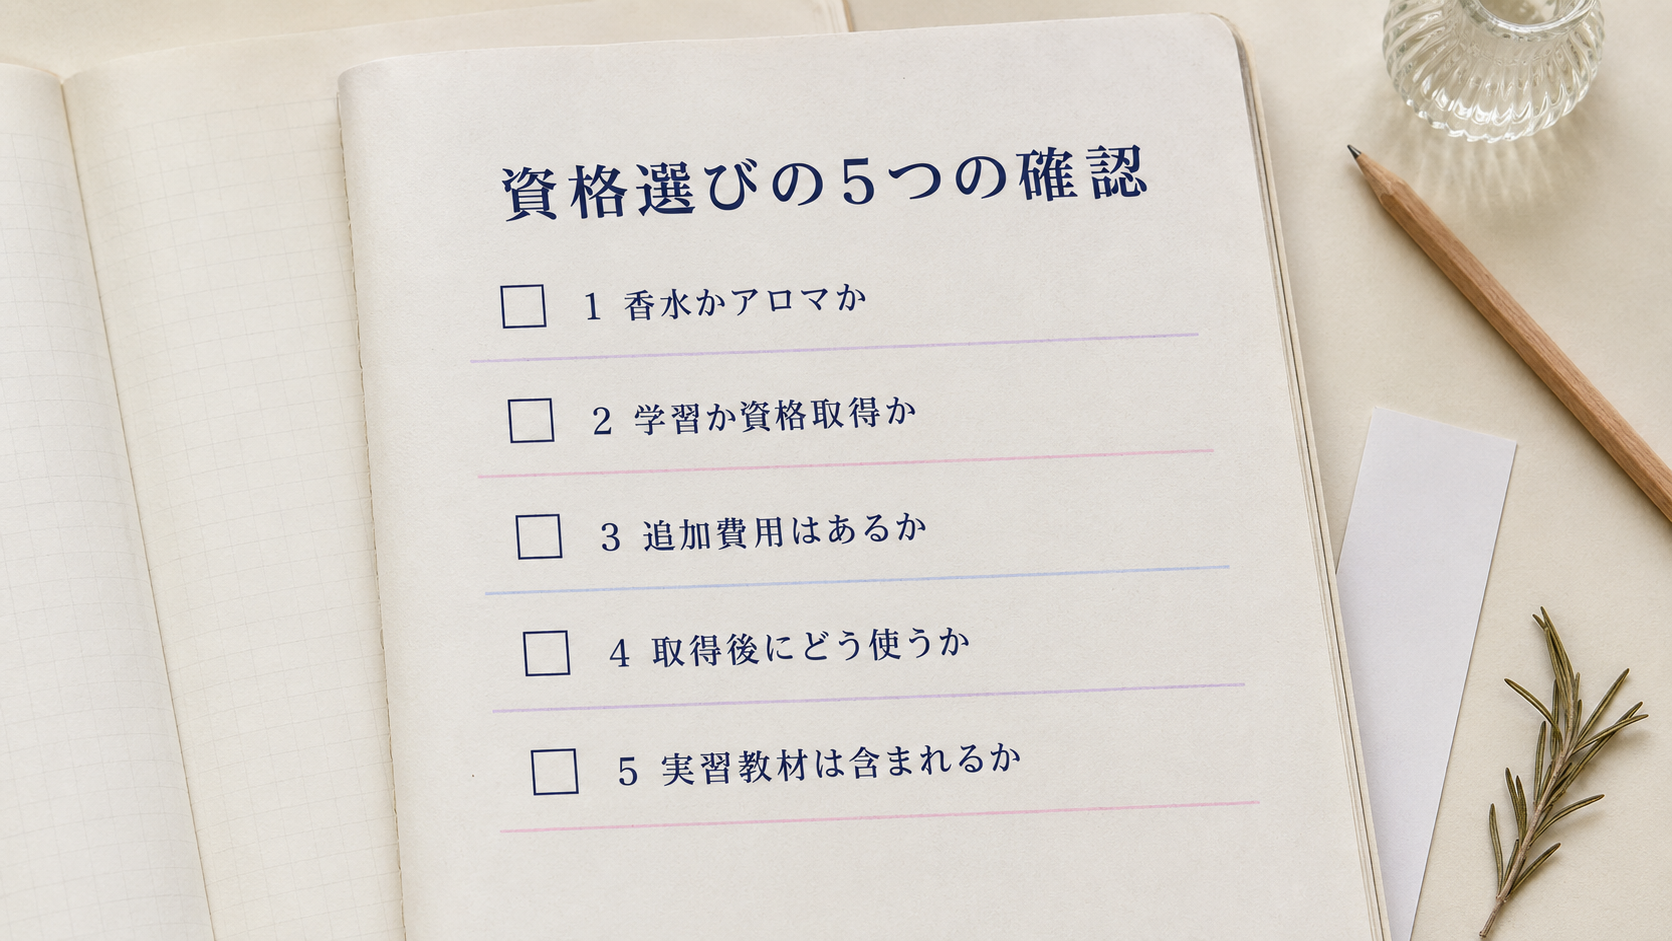 資格選びの5つの確認
1 香水かアロマか
2 学習か資格取得か
3 追加費用はあるか
4 取得後にどう使うか
5 実習教材は含まれるか